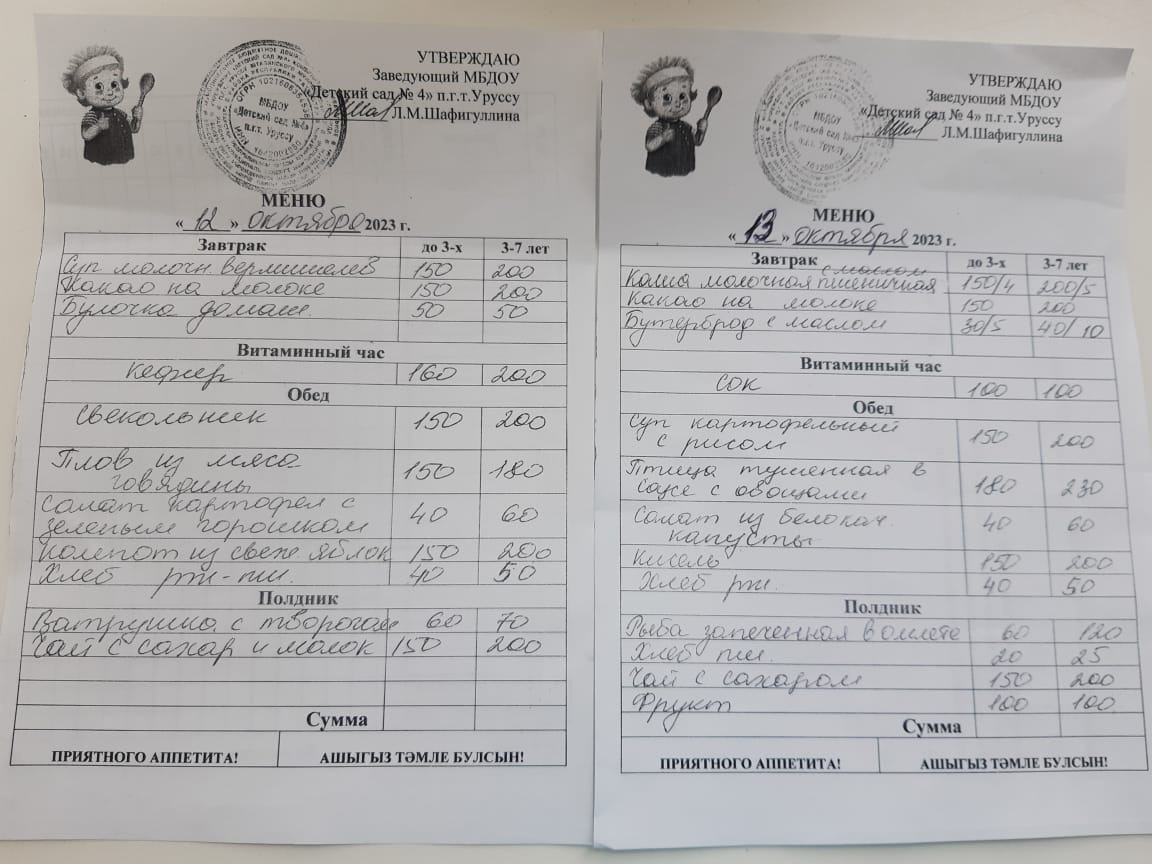 УТВЕРЖДАЮ
Заведующий МБДОУ
«Детский сад № 4» п.г.т.Уруссу
Л.М.Шафигуллина
МБДОУ
«Детский сад №4»
п.г.т. Уруссу
МЕНЮ
« 12 » октября 2023 г.
Завтрак до 3-х 3-7 лет
Суп молочн. вермишелев 150 200
Какао на молоке 150 200
Булочка домаш. 50 50
Витаминный час
кефир 160 200
Обед
Свекольник 150 200
Плов из мяса
говядины 150 180
Салат картофел с
зеленым горошком 40 60
Компот из свеж. яблок 150 200
Хлеб рж-пш. 40 50
Полдник
Ватрушка с творогом 60 70
Чай с сахар и молок 150 200
Сумма
ПРИЯТНОГО АППЕТИТА! АШЫГЫЗ ТӘМЛЕ БУЛСЫН!
УТВЕРЖДАЮ
Заведующий МБДОУ
«Детский сад № 4» п.г.т.Уруссу
Л.М.Шафигуллина
МБДОУ
«Детский сад №4»
п.г.т. Уруссу
МЕНЮ
« 13 » октября 2023 г.
Завтрак до 3-х 3-7 лет
с маслом
Каша молочная пшеничная 150/4 200/5
Какао на молоке 150 200
Бутерброд с маслом 30/5 40/10
Витаминный час
сок 100 100
Обед
Суп картофельный
с рисом 150 200
Птица тушенная в
соусе с овощами 180 230
Салат из белокач.
капусты 40 60
Кисель 150 200
Хлеб рж. 40 50
Полдник
Рыба запеченная в омлете 60 120
Хлеб пш. 20 25
Чай с сахаром 150 200
Фрукт 100 100
Сумма
ПРИЯТНОГО АППЕТИТА! АШЫГЫЗ ТӘМЛЕ БУЛСЫН!